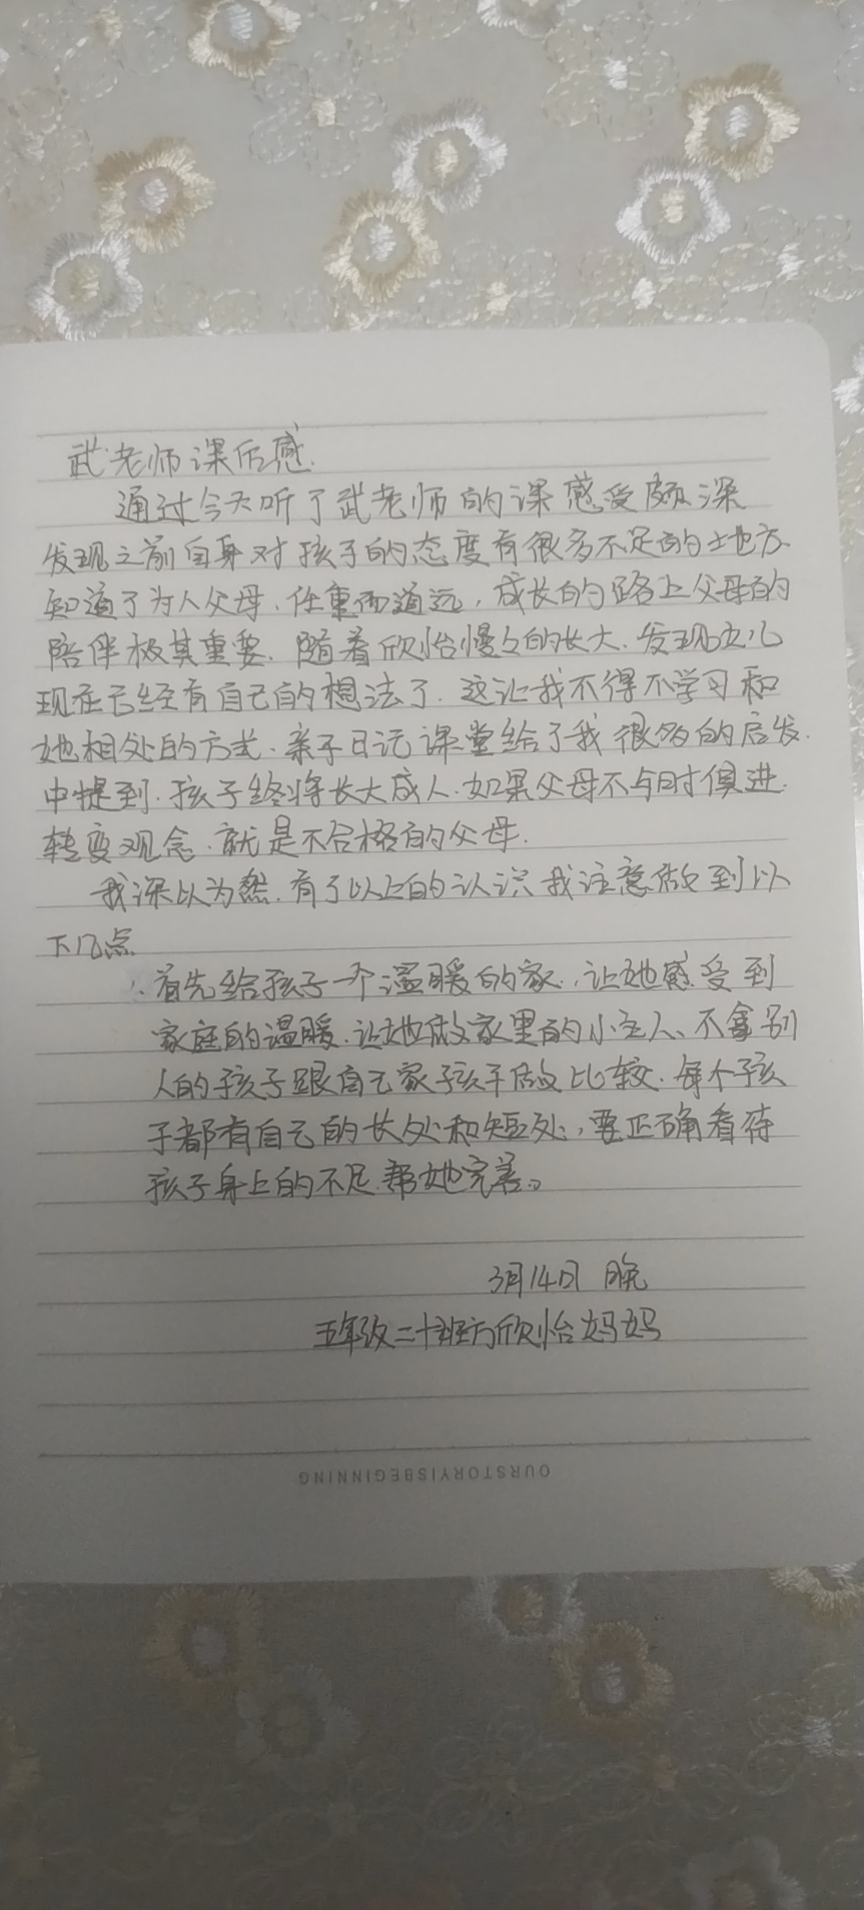 武老师课后感.
通过今天听了武老师的课感受颇深
发现之前自身对孩子的态度有很多不足的土地方.
知道了为人父母.任重而道远,成长的路上父母的
陪伴极其重要.随着欣怡慢々的长大.发现女儿
现在已经有自己的想法了.这让我不得不学习和
她相处的方式.亲子日记课堂给了我很多的启发.
中提到.孩子终将长大成人.如果父母不与时俱进.
转变观念.就是不合格的父母.
我深以为然.有了以上的认识我注意做到以
下几点
1.首先给孩子一个温暖的家.,让她感受到
家庭的温暖.让她做家里的小主人、不拿别
人的孩子跟自己家孩子做比较.每个孩
子都有自己的长处和短处,要正确看待
孩子身上的不足.帮她完善。
3月14日 晚
五年级二十班方欣怡妈妈
OURSTORYISBEGINNING